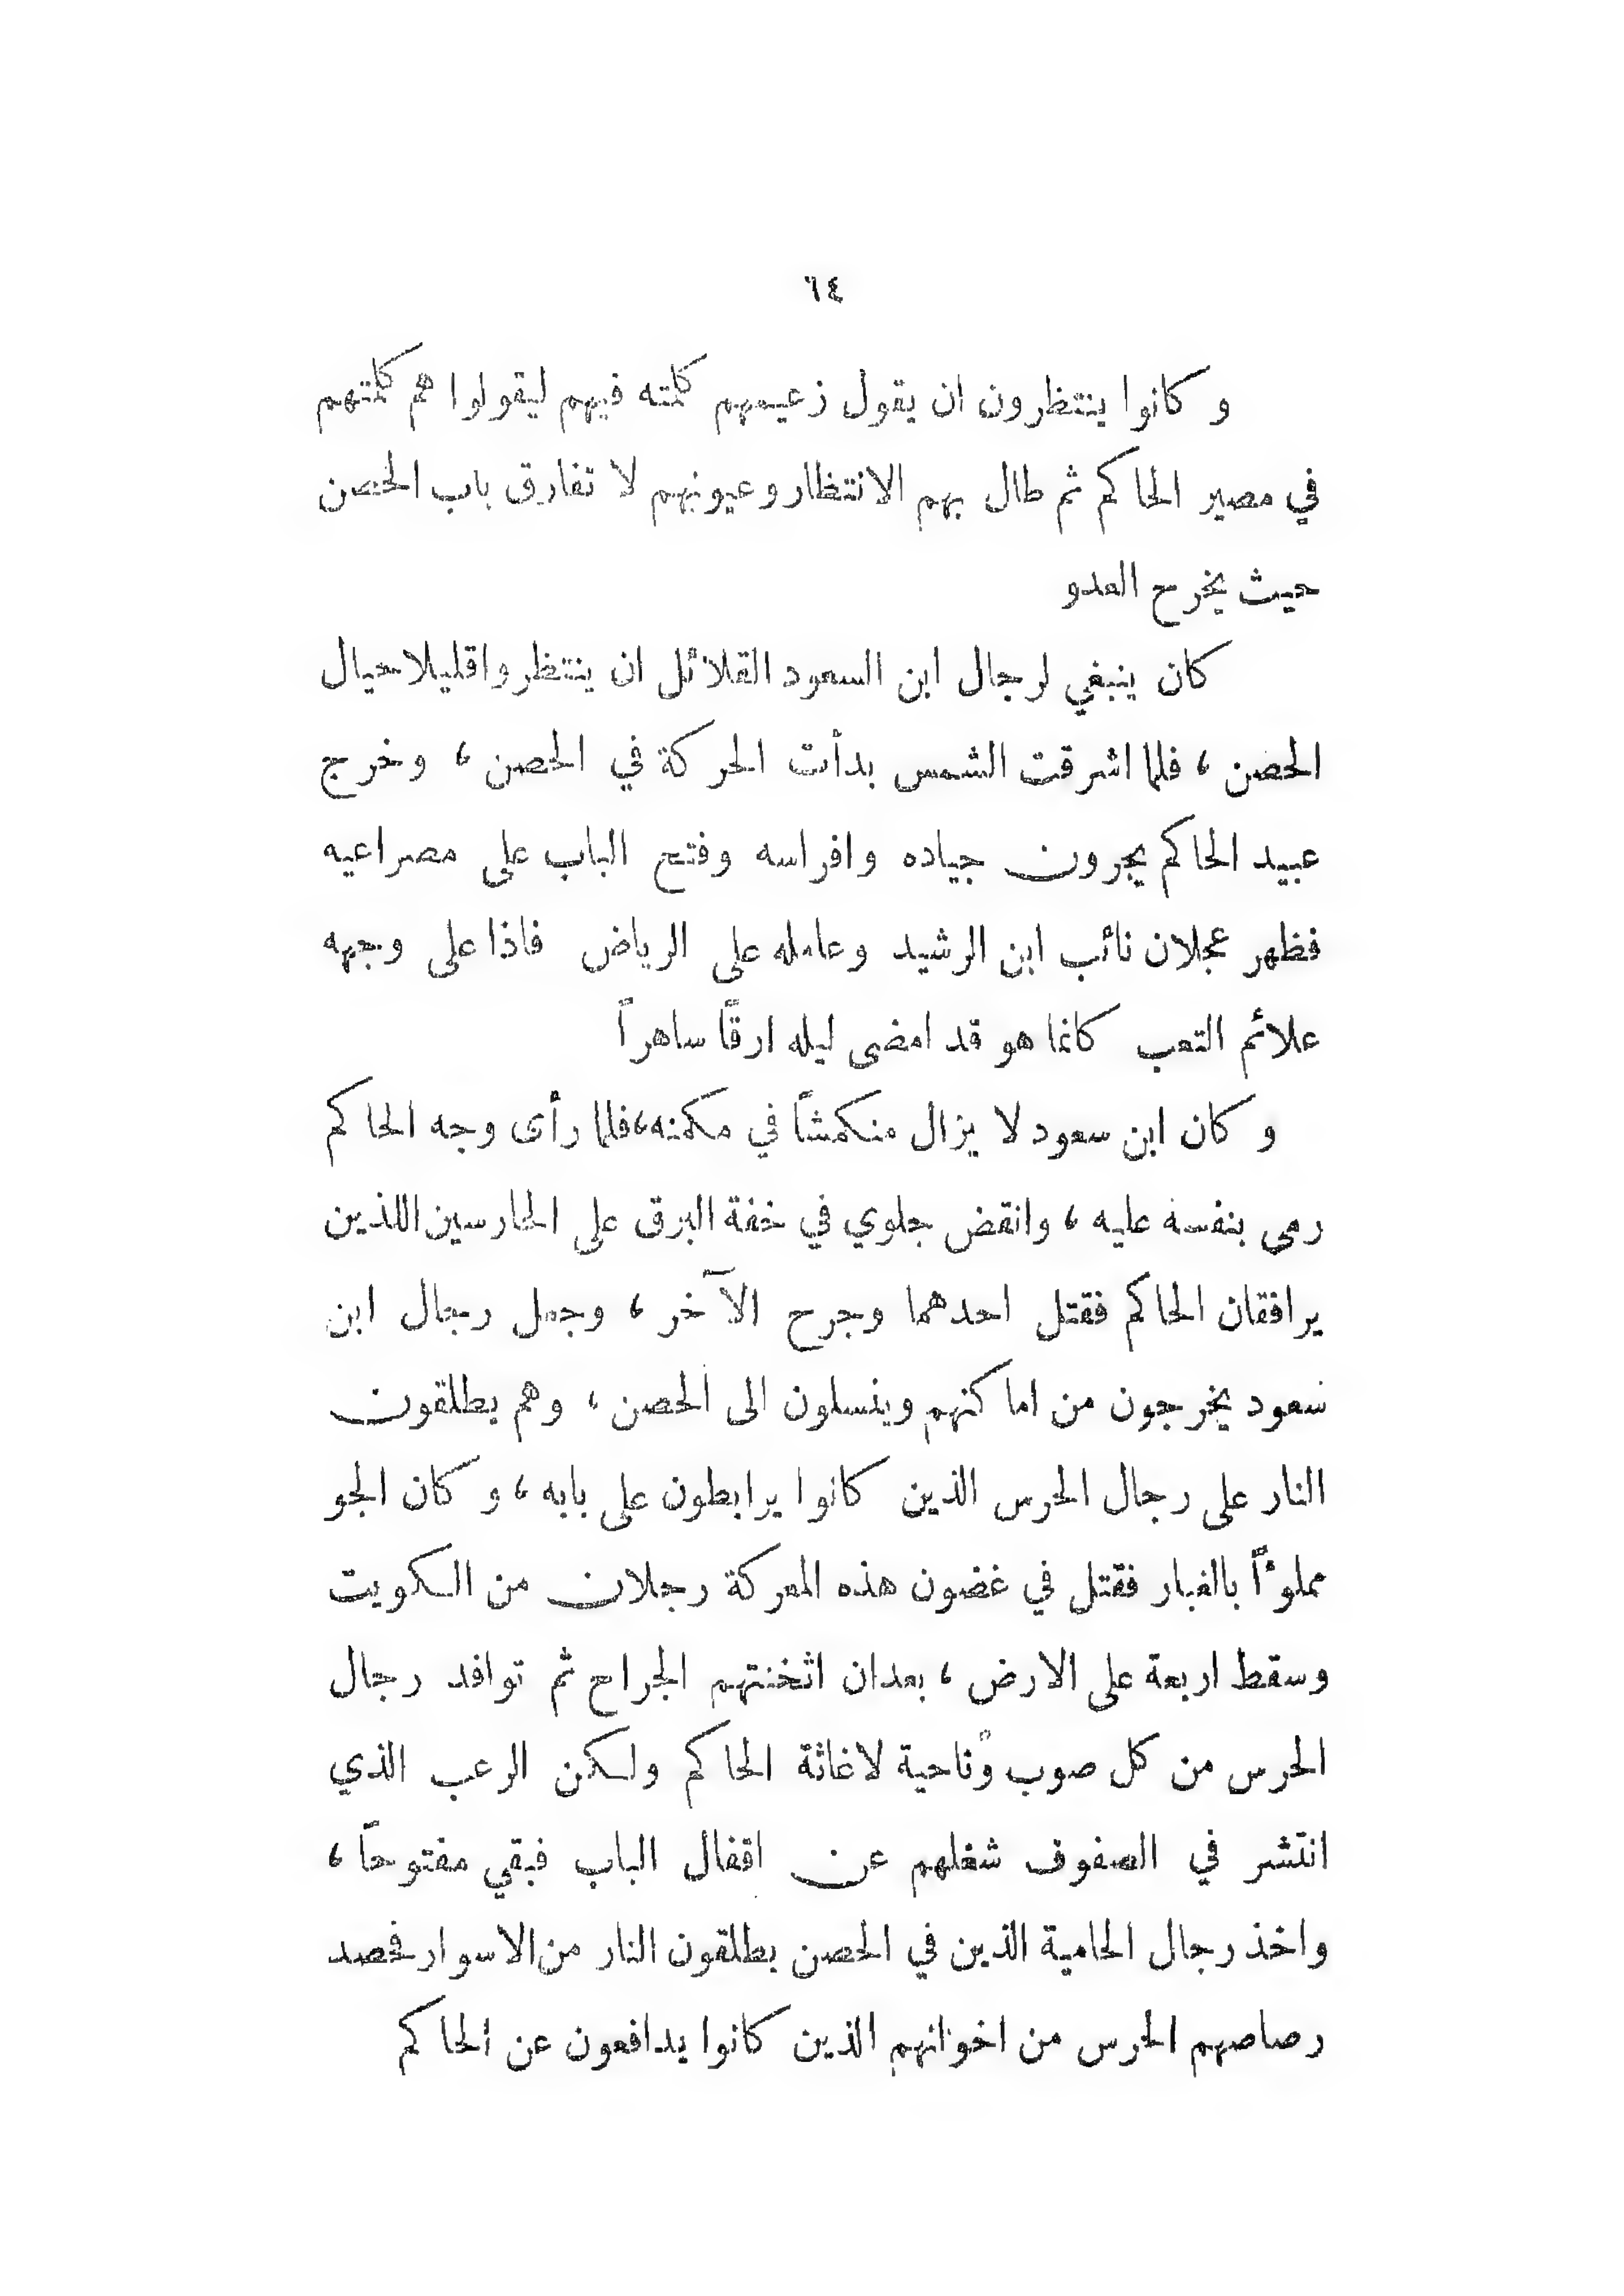 ٦٤
وكانوا ينتظرون ان يقول زعيمهم كلمته فيهم ليقولوا هم كلمتهم
في مصير الحاكم ثم طال بهم الانتظار وعيونهم لا تفارق باب الحصن
حيث يخرج العدو
كان ينبغي لرجال ابن السعود القلائل ان ينتظروا قليلا حيال
الحصن ، فلما اشرقت الشمس بدأت الحركة في الحصن ، وخرج
عبيد الحاكم يجرون جياده وافراسه وفتح الباب على مصراعيه
فظهر عجلان نائب ابن الرشيد وعامله على الرياض فاذا على وجهه
علائم التعب كانما هو قد امضى ليله ارقاً ساهراً
وكان ابن سعود لا يزال منكمشاً في مكمنه، فلما رأى وجه الحاكم
رمى بنفسه عليه ، وانقض جلوي في خفة البرق على الحارسين اللذين
يرافقان الحاكم فقتل احدهما وجرح الآخر ، وجعل رجال ابن
سعود يخرجون من اماكنهم وينسلون الى الحصن ، وهم يطلقون
النار على رجال الحرس الذين كانوا يرابطون على بابه ، وكان الجو
مملوءاً بالغبار فقتل في غضون هذه المعركة رجلان من الكويت
وسقط اربعة على الارض ، بعد ان اثخنتهم الجراح ثم توافد رجال
الحرس من كل صوب وناحية لاغاثة الحاكم ولكن الرعب الذي
انتشر في الصفوف شغلهم عن اقفال الباب فبقي مفتوحاً ،
واخذ رجال الحامية الذين في الحصن يطلقون النار من الاسوار فحصد
رصاصهم الحرس من اخوانهم الذين كانوا يدافعون عن الحاكم